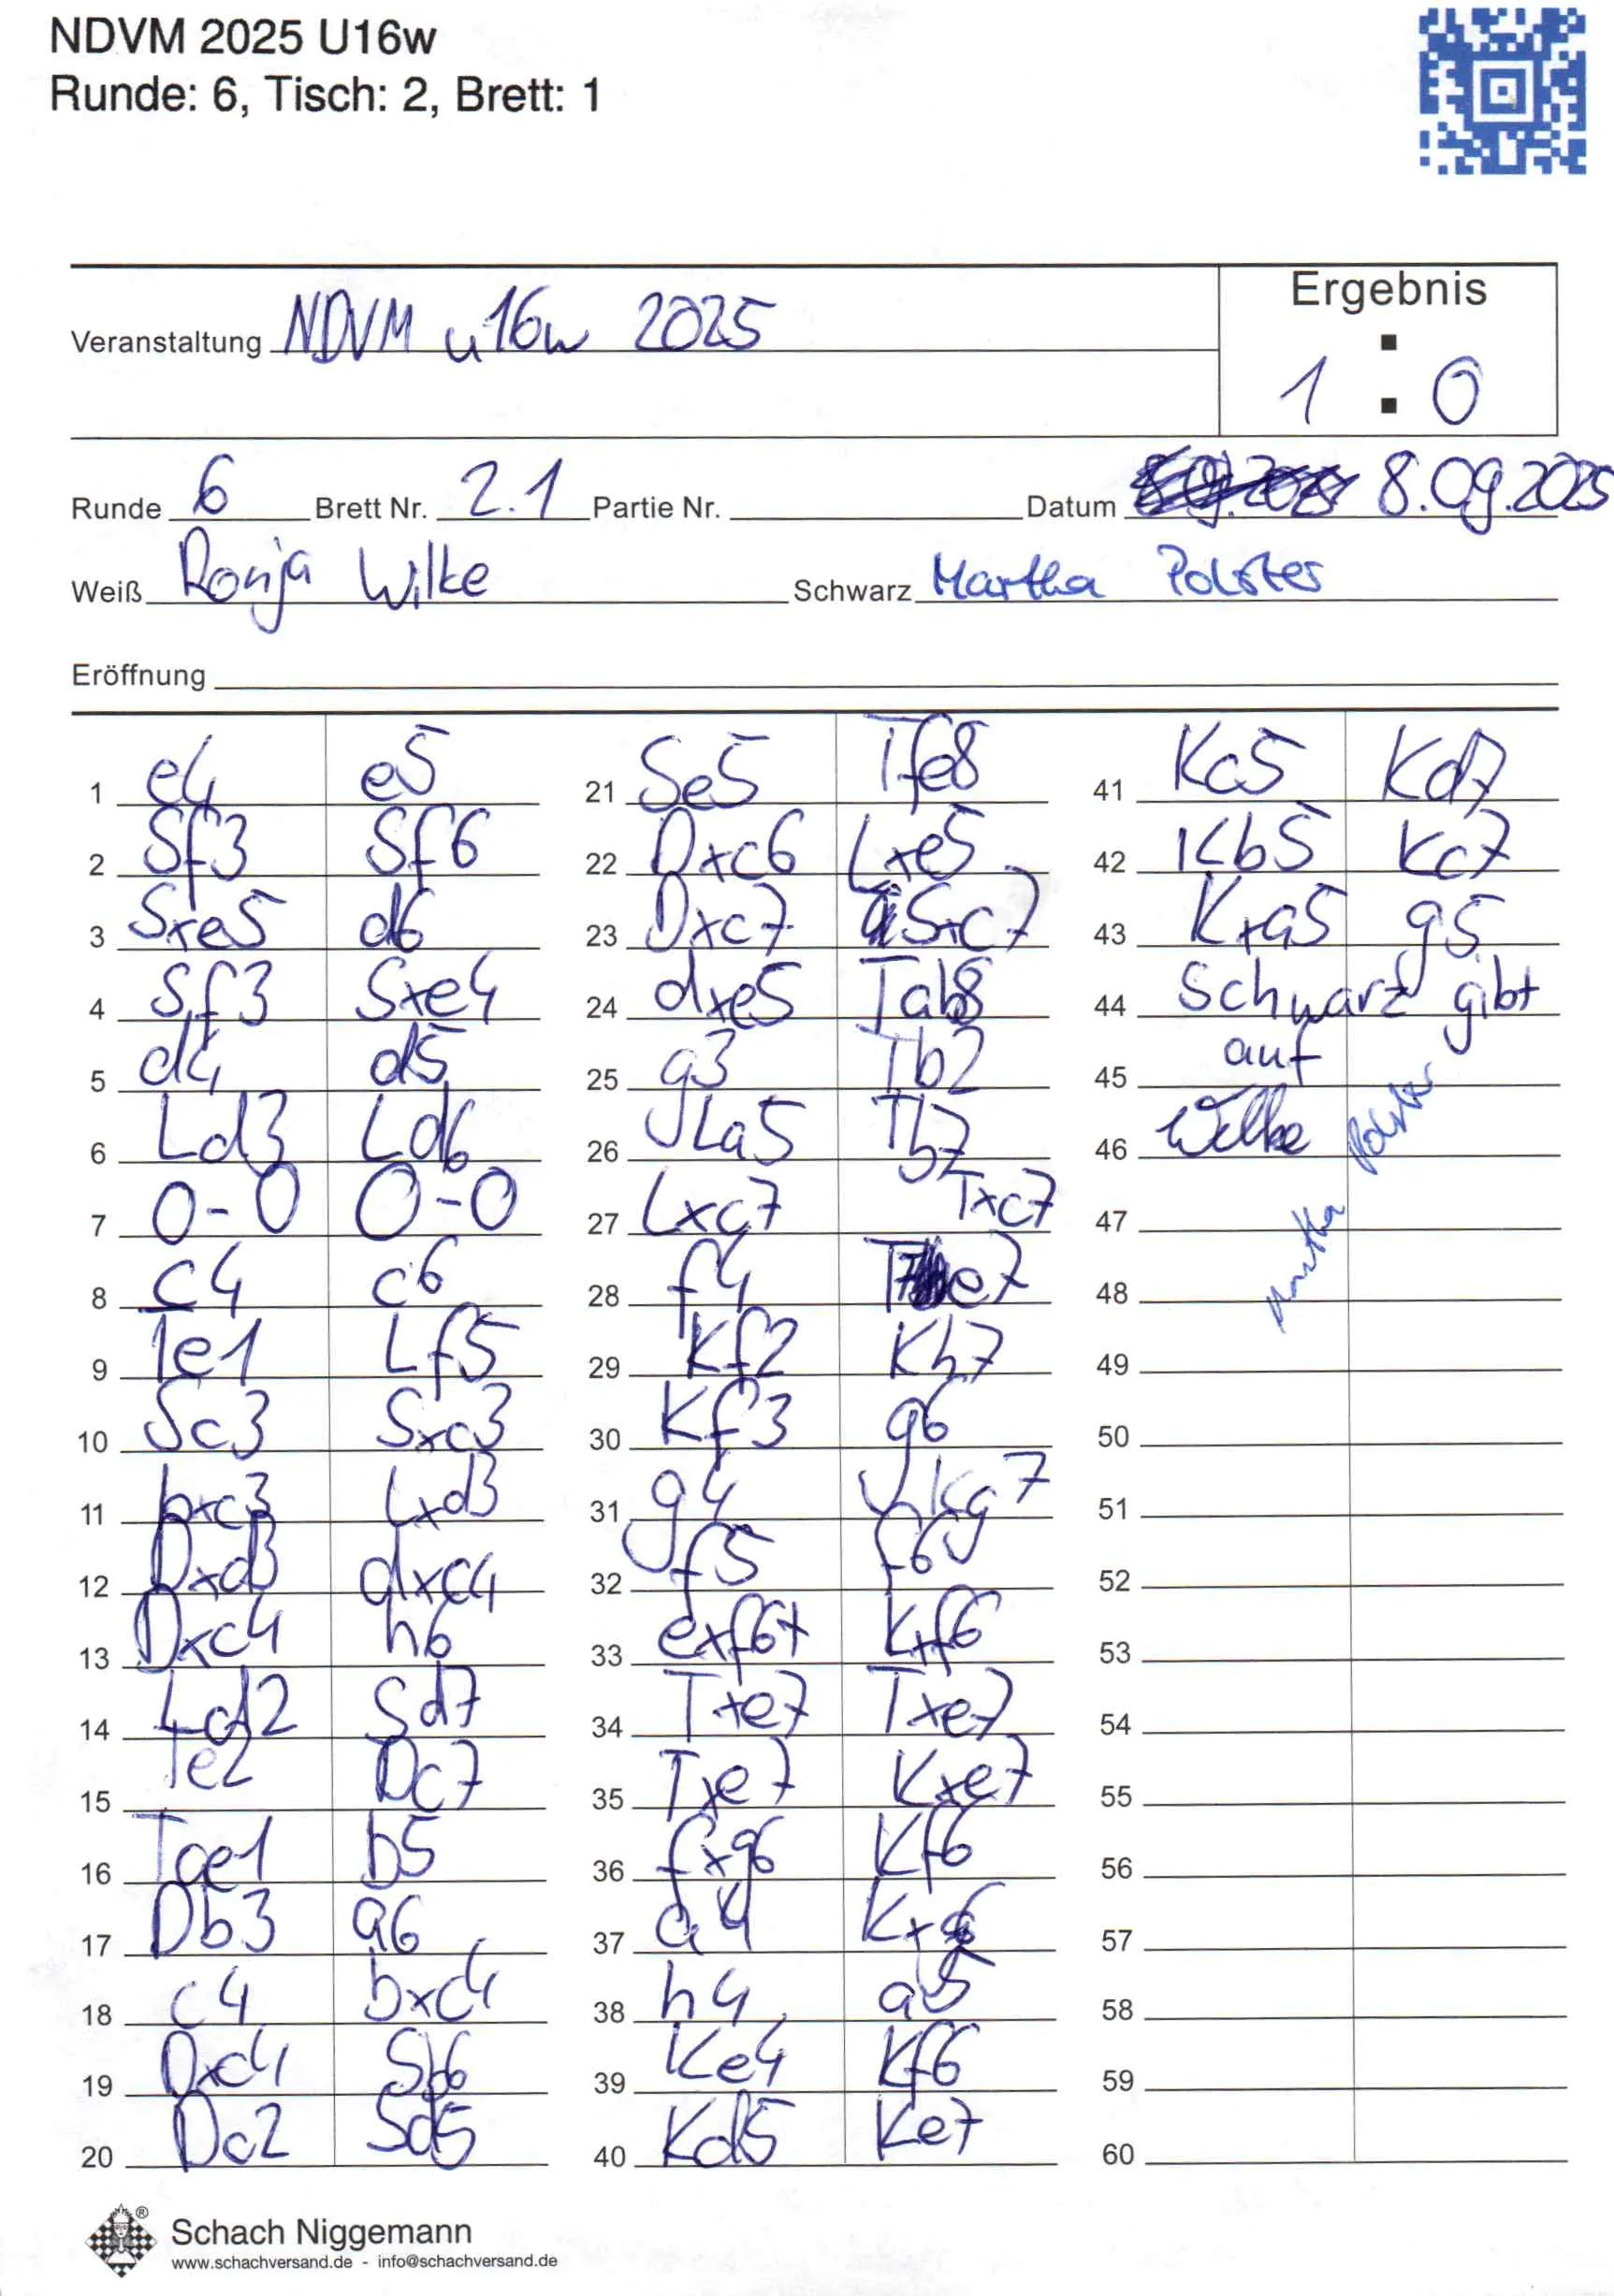 NDVM 2025 U16w
Runde: 6, Tisch: 2, Brett: 1
Ergebnis
Veranstaltung NDVM u16w 2025
1 : 0
Runde 6 Brett Nr. 2.1 Partie Nr. Datum 8.09.2025
Weiß Ronja Wilke Schwarz Martha Polster
Eröffnung
1 e4 e5
2 Sf3 Sf6
3 Sxe5 d6
4 Sf3 Sxe4
5 d4 d5
6 Ld3 Ld6
7 0-0 0-0
8 c4 c6
9 Te1 Lf5
10 Sc3 Sxc3
11 bxc3 Lxd3
12 Dxd3 dxc4
13 Dxc4 h6
14 Ld2 Sd7
15 Te2 Dc7
16 Tae1 b5
17 Db3 a6
18 c4 bxc4
19 Dxc4 Sb6
20 Dc2 Sd5
21 Se5 Tfe8
22 Dxc6 Lxe5
23 Dxc7 Sxc7
24 dxe5 Tab8
25 g3 Tb2
26 La5 Tb7
27 Lxc7 Txc7
28 f4 Te7
29 Kf2 Kh7
30 Kf3 g6
31 g4 Kg7
32 f5 f6
33 exf6+ Kxf6
34 Txe7 Txe7
35 Txe7 Kxe7
36 fxg6 Kf6
37 a4 Kxg6
38 h4 a5
39 Ke4 Kf6
40 Kd5 Ke7
41 Kc5 Kd7
42 Kb5 Kc7
43 Kxa5 g5
44 Schwarz gibt
45 auf
46 Wilke Martha Polster
47
48
49
50
51
52
53
54
55
56
57
58
59
60
®
Schach Niggemann
www.schachversand.de - info@schachversand.de